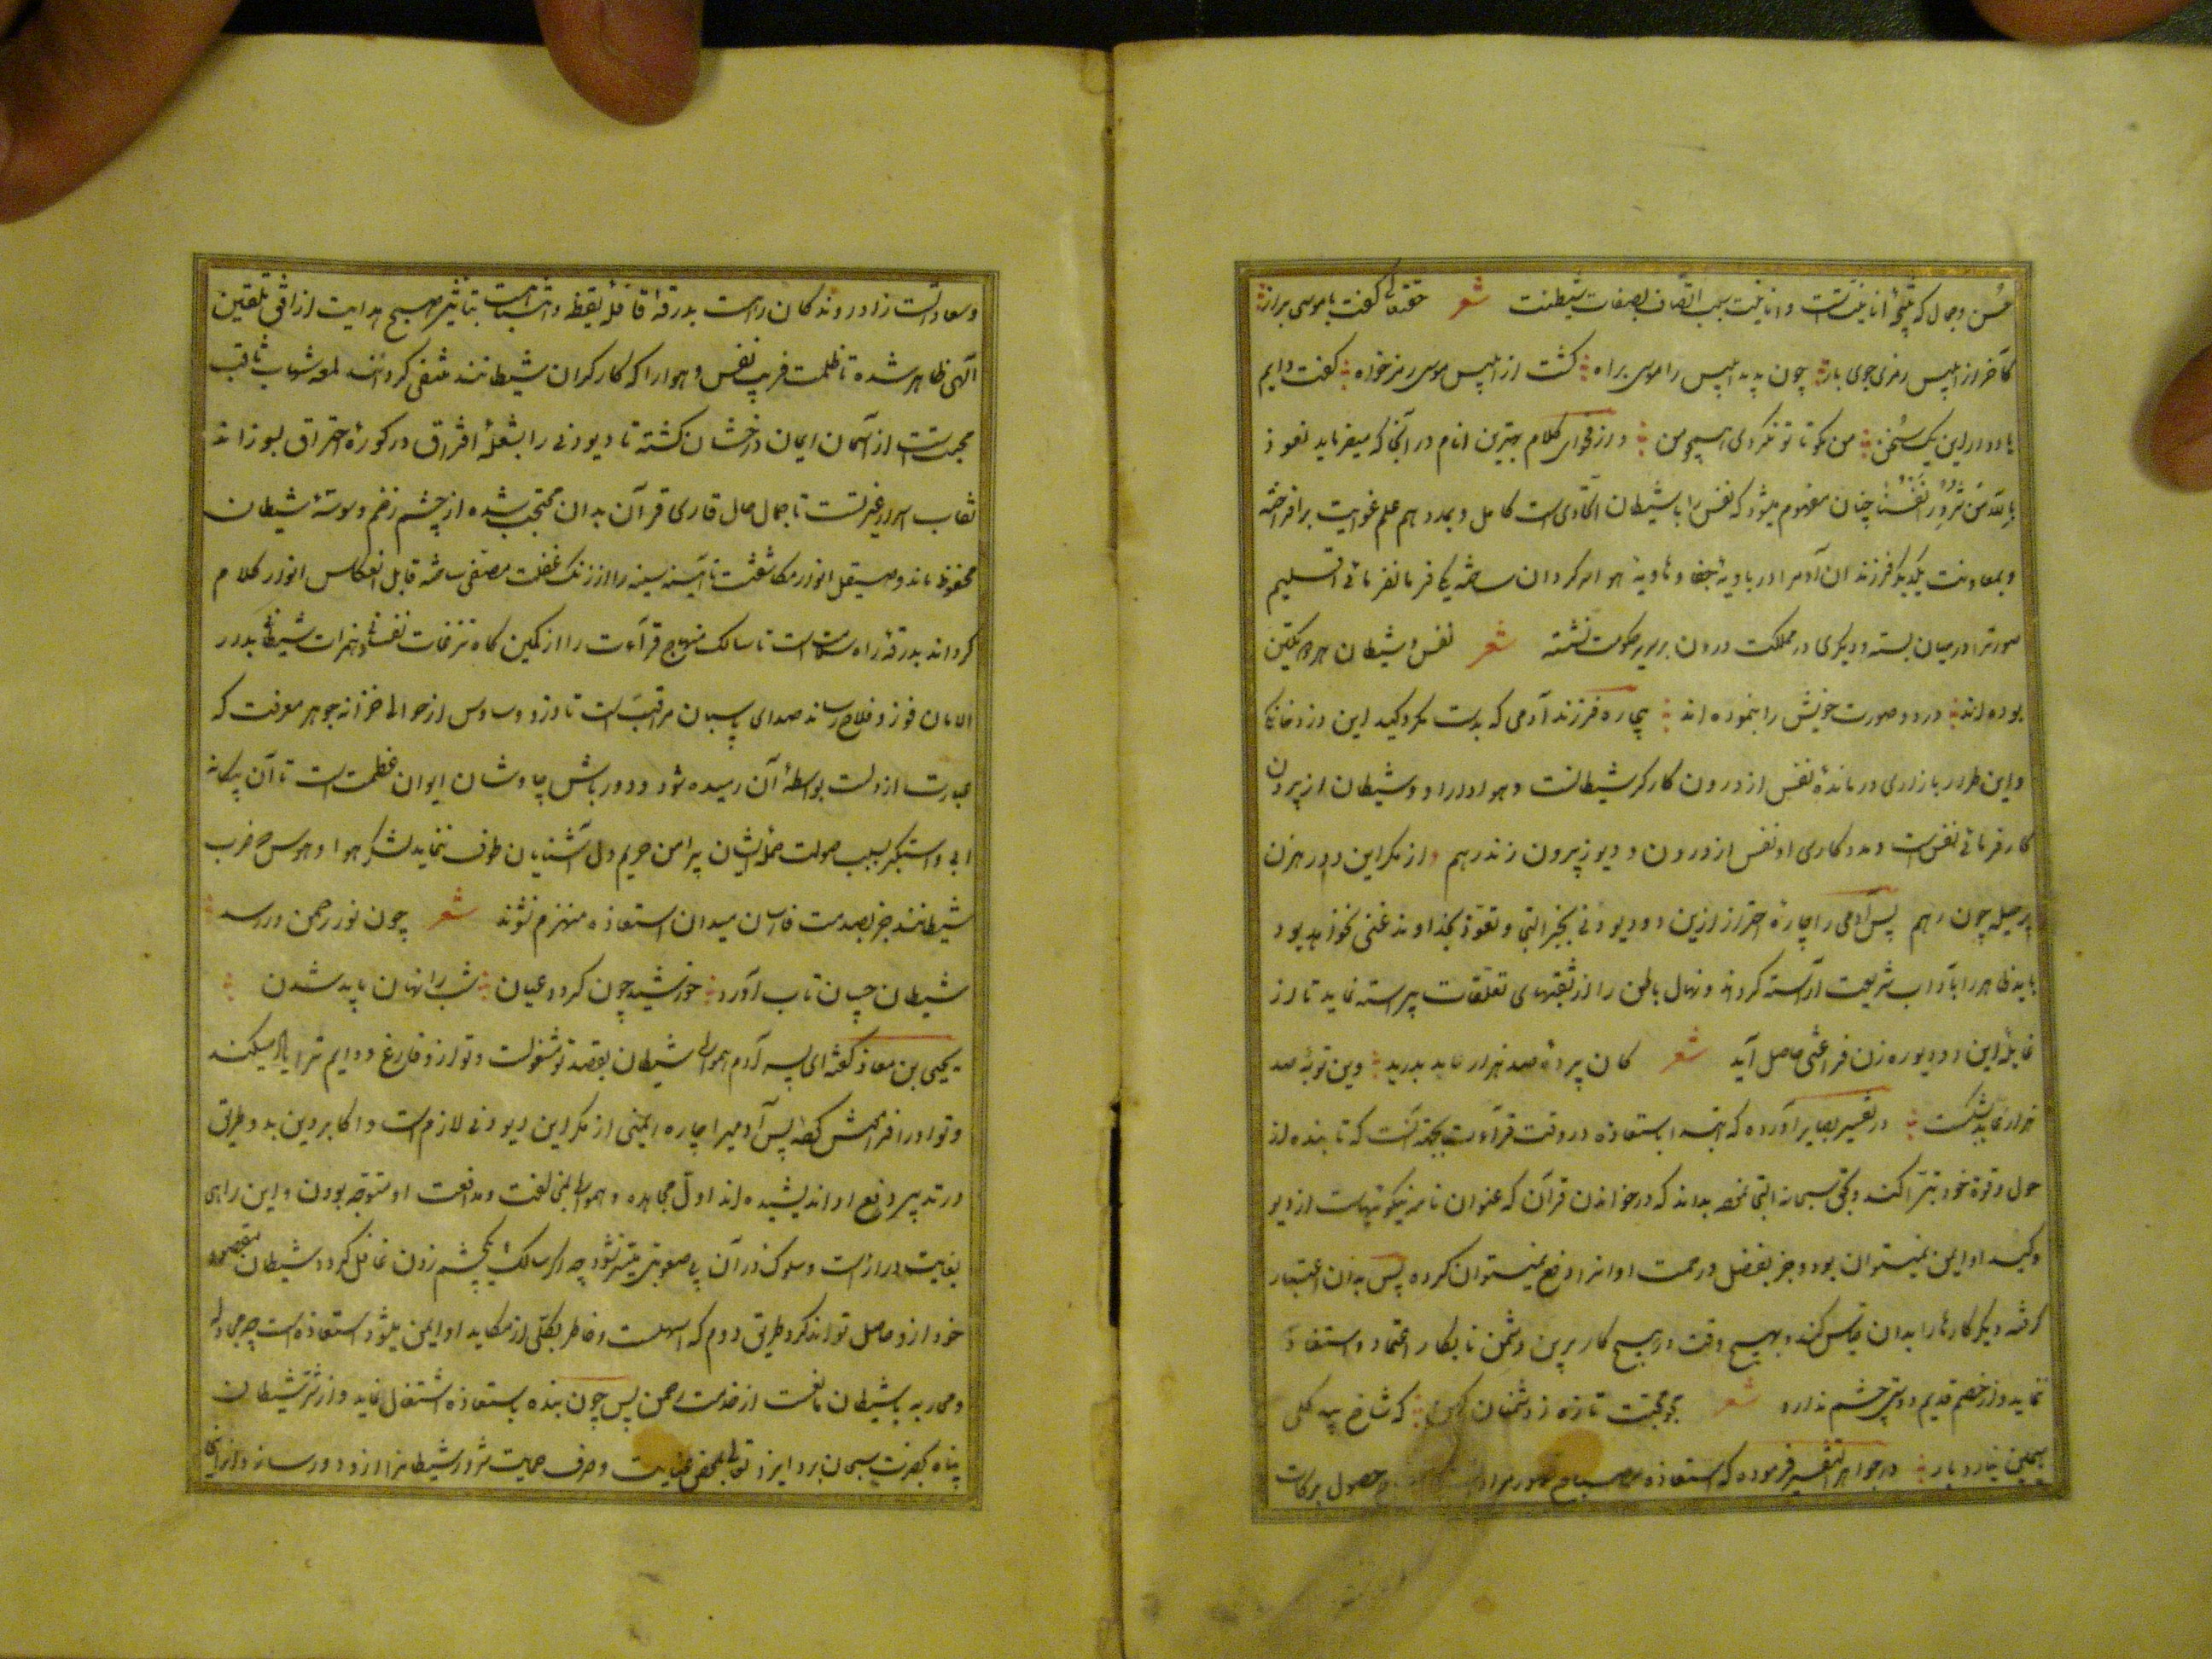 حسن و جمال که نتیجهٔ انانیتست و انانیت سبب اتصاف بصفات شیطنت شعر حقتعالی گفت با موسی براز
کآخر از ابلیس رمزی جوی باز چون بدید ابلیس را موسی براه گشت از ابلیس موسی رمزخواه گفت دایم
یاد دار این یک سخن من مگو تا تو نگردی همچو من و از فحوای کلام بهترین انام در آنجا که میفرماید نعوذ
بالله من شرور انفسنا چنان مفهوم میشود که نفس را با شیطان اتحادی است کامل و هم علم غوایت برافراخته
و بمعاونت یکدیگر فرزندان آدم را در بادیهٔ جفا و هاویهٔ هوا سرگردان ساخته یکی فرمانفرمائی اقلیم
صورترا در میان بسته و دیگری در مملکت درون بر سریر حکومت نشسته شعر نفس و شیطان هر دو یکتن
بوده اند در دو صورت خویش را بنموده اند بیچاره فرزند آدمی که بدست مکر و کید این دزد خانگی
و این طرار بازاری درماندهٔ نفس از درون کارگر شیطانست و هوادار او و شیطان از بیرون
کارفرمائی نفس است و مددکاری او نفس از درون و دیو ز بیرون زند رهم و از مکر این دو رهزن
پر حیله چون رهم پس آدمی را چارهٔ احتراز ازین دو دیو دنی بجز التجا و تعوذ بخداوند غنی نخواهد بود
باید ظاهر را بآداب شریعت آراسته گرداند و نهال باطن را از تعلقات پیراسته نماید تا از
غایلهٔ این دو دیو ره زن فراغتی حاصل آید شعر کان پردهٔ صد هزار عابد بدرید وین توبهٔ صد
هزار عابد بشکست در تفسیر بصایر آورده که ابتدا باستعاذه در وقت قراءت بجهة آنست که تا بنده از
حول و قوة خود تبرا کند و بحق سبحانه التجا نموده بداند که در خواندن قرآن که عنوان نامهٔ نیکوئیهاست از دیو
و کید او ایمن نمیتوان بود و جز بفضل و رحمت او انرا دفع نمیتوان کرد پس بدان اعتبار
گرفته دیگر کارها را بدان قیاس کند و بهیچ وقت در هیچ کار برین دشمن نابکار اعتماد و استعاذ
نماید و از خصم قدیم دوستی چشم ندارد شعر مجو محبت تازه ز دشمنان کهن که شاخ بید گلی
یاسمین نیارد بار در جواهر التفسیر فرموده که استعاذه مصباح حصول برکات
و سعادتست زاد روندگان راهست بدرقهٔ قافلهٔ یقظه و انتباهست بتاثیر صبح هدایت از افق تلقین
آلهی ظاهر شده تا ظلمت فریب نفس و هوا را که کارگران شیطانند منتفی گرداند لمعه شهاب ثاقب
محبتست از آسمان ایمان درخشان گشته تا دیو دنی را بشعلهٔ افتراق در کورهٔ احتراق بسوزاند
نقاب اسرار غیرتست تا جمال حال قاری قرآن بدان محتجب شده از چشم زخم وسوسهٔ شیطان
محفوظ ماند و صیقل انوار مکاشفتست تا آیینهٔ سینه را از زنگ غفلت مصفی ساخته قابل انعکاس انوار کلام
گرداند بدرقهٔ راه سلامتست تا سالک منهاج قراءت را از کمین گاه نزغات نفسانی و همزات شیطانی بدر
الامان فوز و فلاح رساند صدای پاسبان مراقبت است تا دزد وساوس از حوالی خزانه جوهر معرفت که
عبارت از دلست بواسطهٔ آن رمیده شود و دورباش چاوشان ایوان عظمت است تا آن بیگانهٔ
ابی و استکبر بسبب صولت حملهٔ ایشان پیرامن حریم دل آشنایان طوف ننماید لشکر هوا و هوس حزب
شیطانند جز بصدمت فارسان میدان استعاذه منهزم نشوند شعر چون نور رحمن در رسد
شیطان چسان تاب آورد خورشید چون گردد عیان شب را نهان باید شدن
یحیی بن معاذ گفته ای پسر آدم همواره شیطان بقصد تو مشغولست و تو ازو فارغ و دایم ترا یاد میکند
و تو او را فراموش کرده پس آدمیرا چاره ایمنی از مکر این دیو دنی لازم است و اکابر دین بدو طریق
در تدبیر دفع او اندیشیده اند اول مجاهده و همواره بمخالفت و مدافعت او متوجه بودن و این راهی
بغایت دراز است و سلوک در آن بی صعوبتی میسر نشود چه اگر سالک یکچشم زدن غافل گردد شیطان مقصود
خود ازو حاصل تواند کرد طریق دوم که اسهلست و خاطر بکلی از مکاید او ایمن میشود استعاذه است چه مجادله
و محاربه با شیطان مانعست از خدمت رحمن پس چون بنده باستعاذه اشتغال نماید و از شر شیطان
پناه بحضرت سبحان برد ایزد تعالی بمحض عنایت و صرف حمایت شرور شیطانرا ازو دور ساند و از اینجا